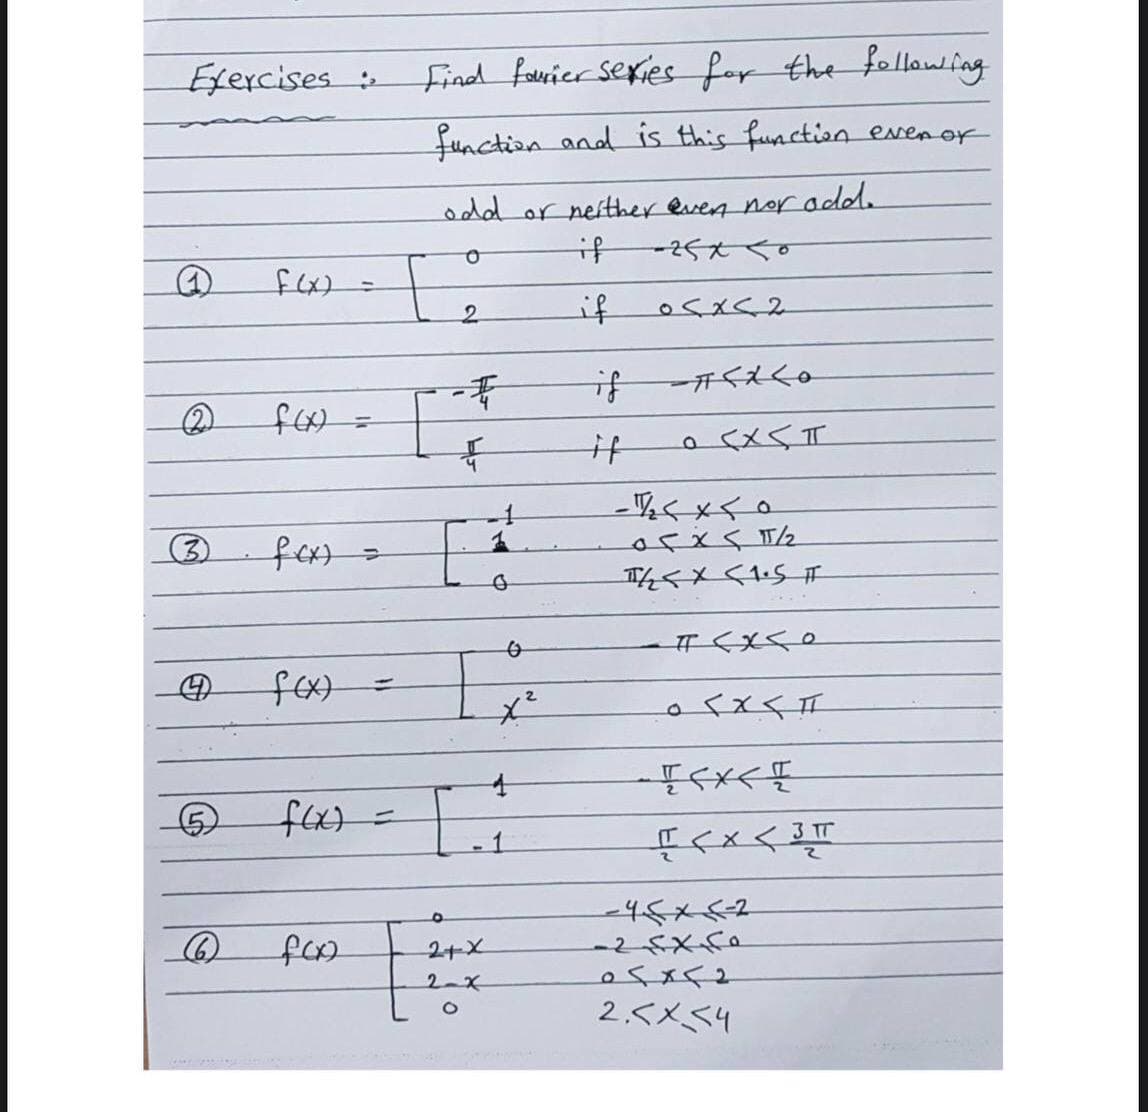 Exercises :. Find fourier series for the following
function and is this function even or
odd or neither even nor odd.
① f(x) = [ 0 if -2<x<0
2 if 0<x<2
② f(x) = [ -π/4 if -π<x<0
π/4 if 0<x<π
③ f(x) = [ -1 -π/2<x<0
1 0<x<π/2
0 π/2<x<1.5π
④ f(x) = [ 0 -π<x<0
x² 0<x<π
⑤ f(x) = [ 1 -π/2<x<π/2
-1 π/2<x<3π/2
⑥ f(x) [ 0 -4≤x≤-2
2+x -2≤x≤0
2-x 0≤x≤2
0 2≤x≤4